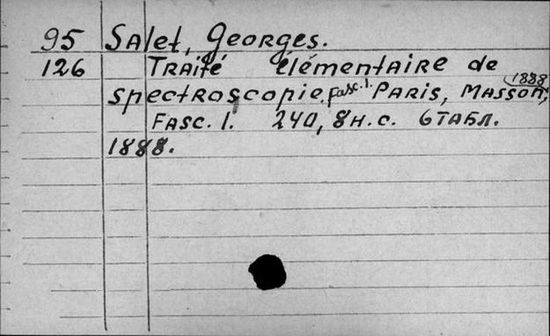 95 Salet, Georges.
126 Traité élémentaire de
spectroscopie, fasc. 1. Paris, Masson, 1888
Fasc. 1. 240, 8 н.с. 6 табл.
1888.